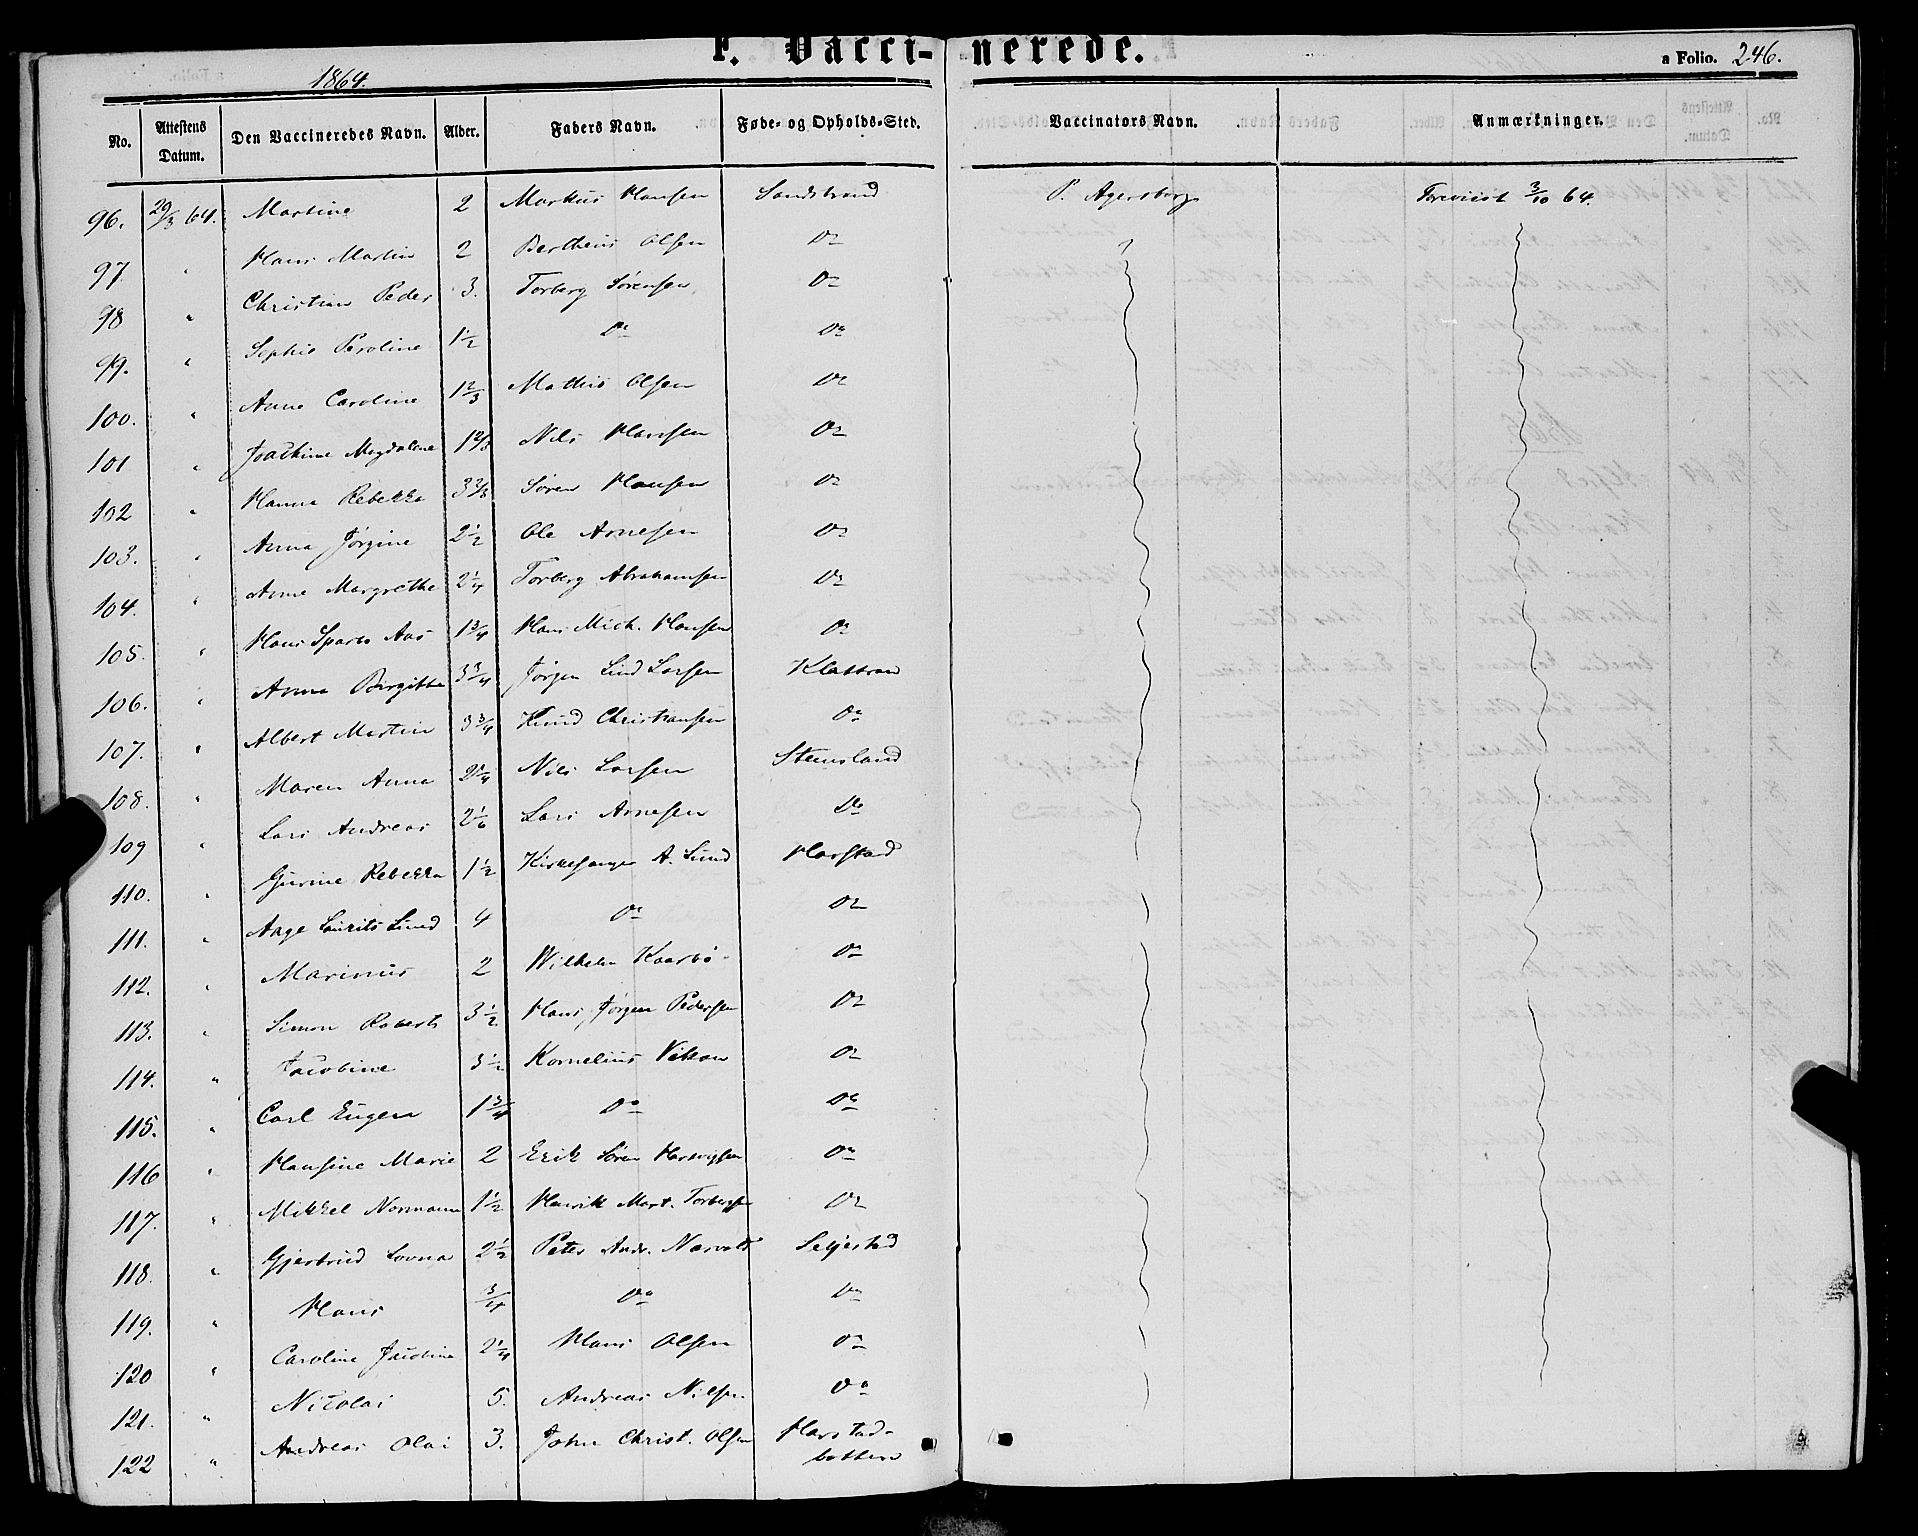 F. Vaccinerede.
a Folio. 246.
1864.
No. Attestens Datum. Den Vaccineredes Navn. Alder. Faders Navn. Føde- og Opholds-Sted. Vaccinators Navn. Anmærkninger.
96. 29/3 64. Martine 2 Markus Hansen Sandstrand P. Agersborg Foreviist 3/10 64.
97 " Hans Martin 2 Bertheus Olsen Do
98 " Christian Peder 3. Torberg Sørensen Do
99. " Sophie Peroline 1½ Do Do
100. " Anne Caroline 1 2/3 Mathis Olsen Do
101 " Joachine Magdalene 1 2/3 Nils Hansen Do
102 " Hanna Rebekka 3 2/3 Søren Hansen Do
103. " Anna Jørgine 2½ Ole Arnesen Do
104. " Anne Margrethe 2¼ Torberg Abrahamsen Do
105. " Hans Sparbo Aas 1¾ Hans Mich. Hansen Do
106. " Anna Birgitta 3¾ Jørgen Lind Larsen Klattran
107. " Albert Martin 3¾ Knud Christiansen Do
108. " Maren Anna 2¼ Nils Larsen Stensland
109 " Lars Andreas 2 1/6 Lars Arnesen Do
110. " Gurine Rebekka 1½ Kirkesanger A. Lund Harstad
111. " Aage Laurits Lund 4 Do Do
112. " Marinus 2 Wilhelm Kaarbø Do
113. " Simon Robert 3½ Hans Jørgen Pedersen Do
114. " Jacobine 3½ Kornelius Do
115. " Carl Eugen 1¾ Do Do
116 " Hansine Marie 2 Erik Søren Do
117. " Mikkel Normann 1½ Henrik Mart. Torbergsen Do
118. " Gjertrud Lovna 2½ Peter Andr. Normann Seljestad
119. " Hans ¾ Do Do
120 " Caroline Jacobine 2¼ Hans Olsen Do
121. " Nicolai 5. Andreas Nilsen Do
122 " Andreas Olai 3. John Christ. Olsen Harstad-
botten